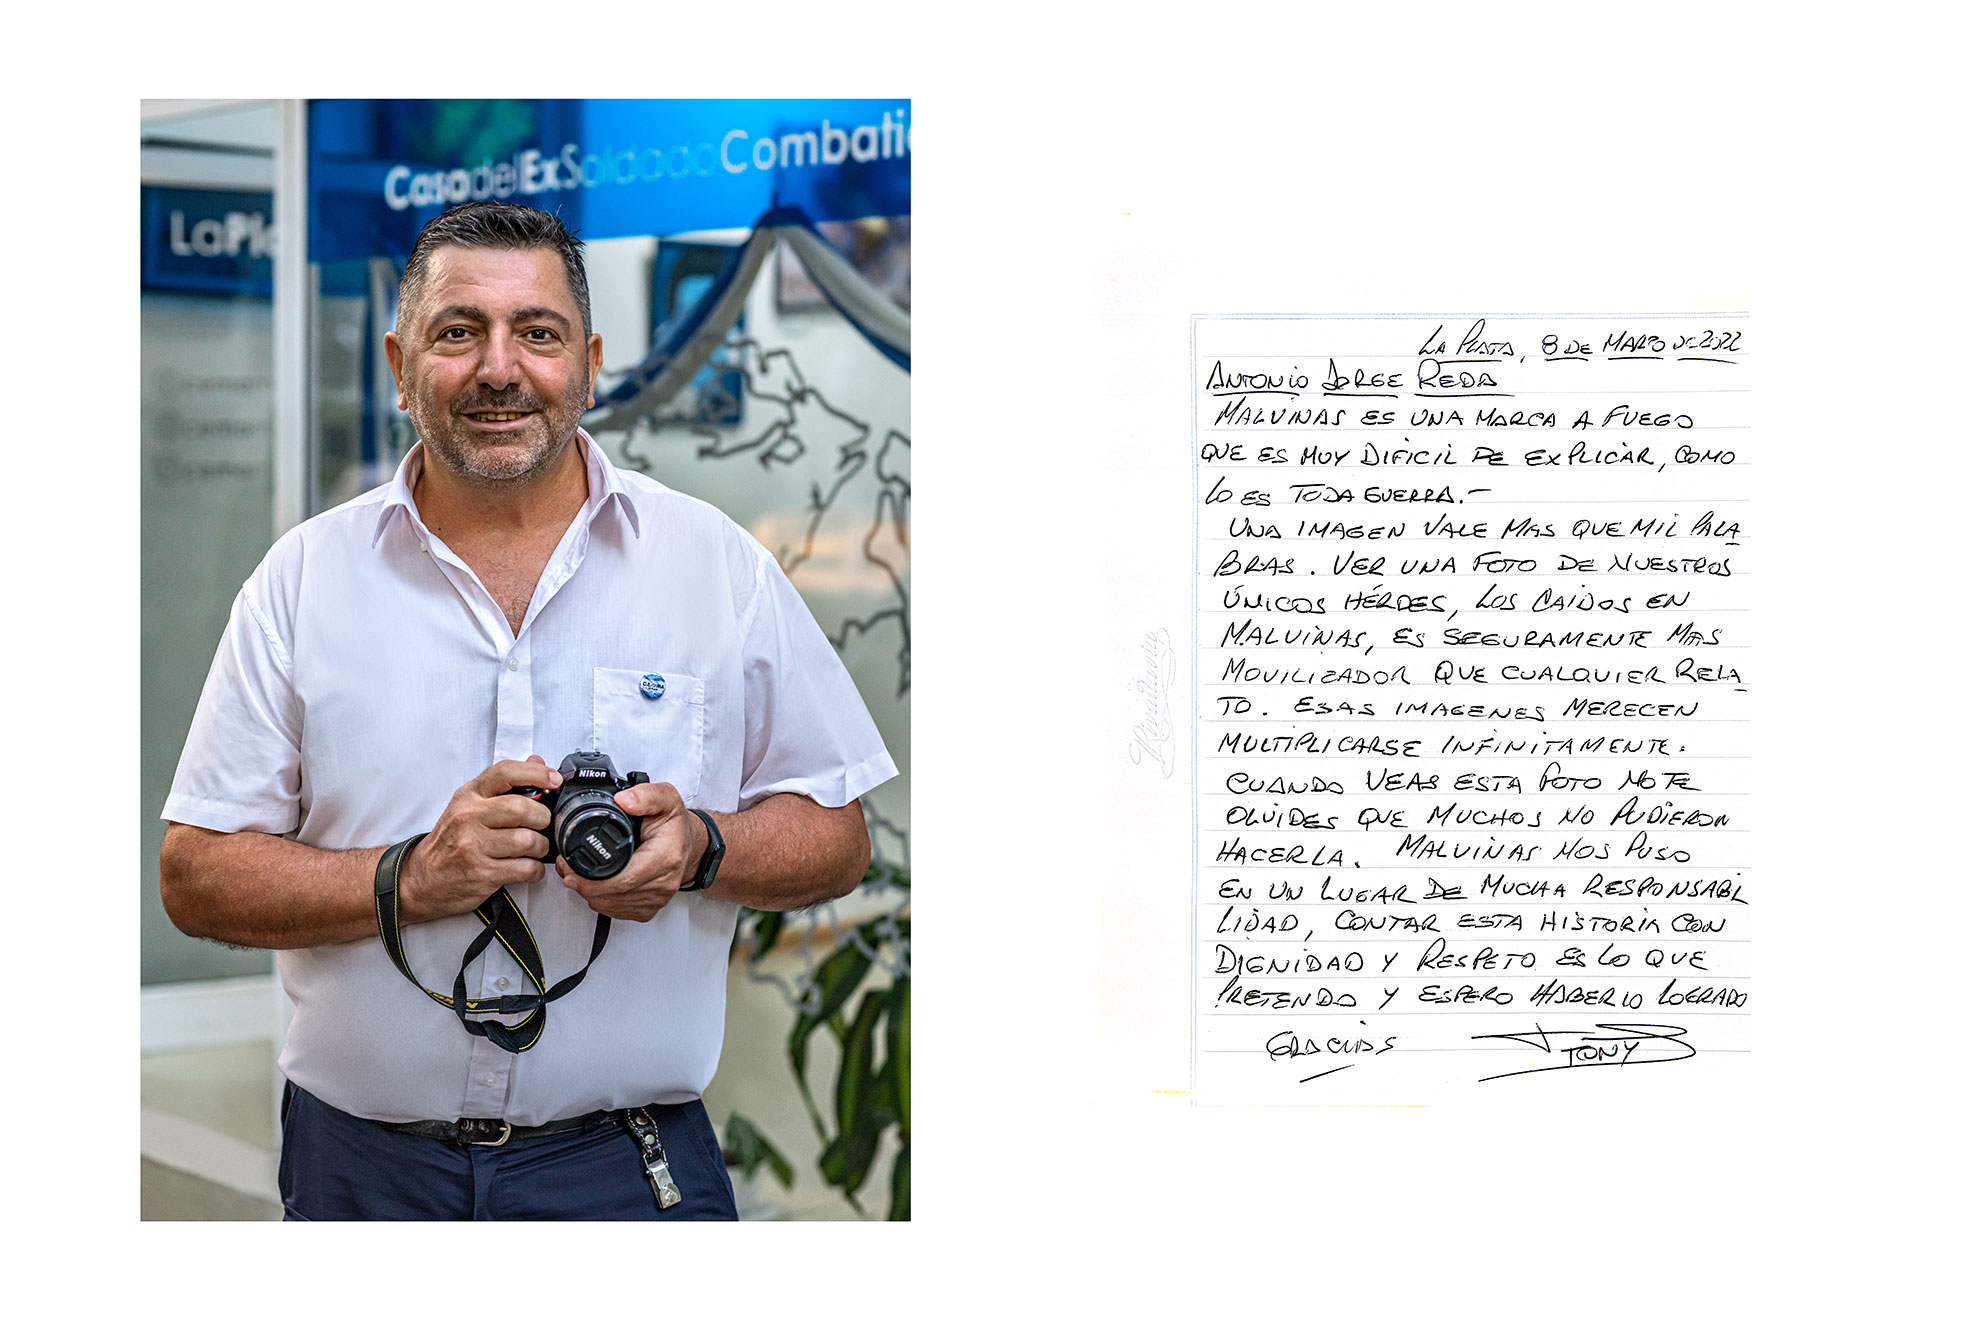 CasadelExSoldadoCombatie
LaPla
Nikon
Nikon
LA PLATA, 8 DE MARZO DE 2022
ANTONIO JORGE REDA
MALVINAS ES UNA MARCA A FUEGO
QUE ES MUY DIFICIL DE EXPLICAR, COMO
LO ES TODA GUERRA.-
UNA IMAGEN VALE MAS QUE MIL PALA
BRAS. VER UNA FOTO DE NUESTROS
ÚNICOS HÉROES, LOS CAIDOS EN
MALVINAS, ES SEGURAMENTE MAS
MOVILIZADOR QUE CUALQUIER RELA
TO. ESAS IMAGENES MERECEN
MULTIPLICARSE INFINITAMENTE.
CUANDO VEAS ESTA FOTO NO TE
OLVIDES QUE MUCHOS NO PUDIERON
HACERLA. MALVINAS NOS PUSO
EN UN LUGAR DE MUCHA RESPONSABI
LIDAD, CONTAR ESTA HISTORIA CON
DIGNIDAD Y RESPETO ES LO QUE
PRETENDO Y ESPERO HABERLO LOGRADO
GRACIAS
TONY
Rivadavia